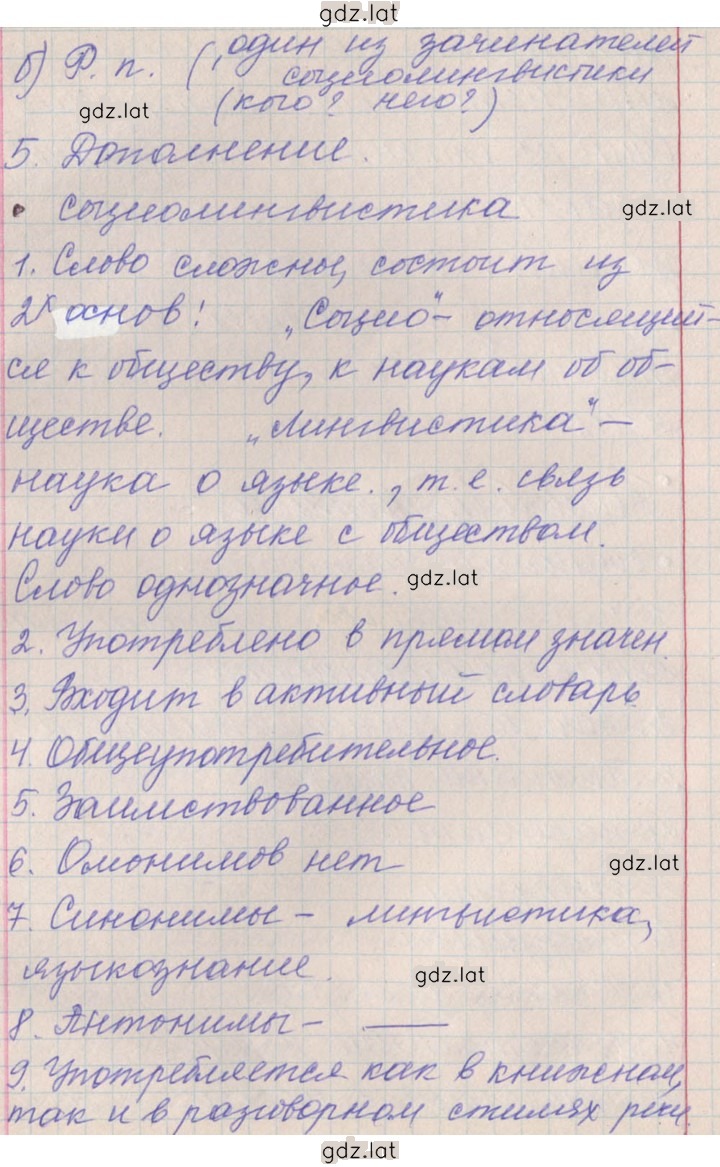 gdz.lat
б) Р. п. (, один из зачинателей
социолингвистики
gdz.lat (кого? чего?)
5. Дополнение.
• социолингвистика gdz.lat
1. Слово сложное, состоит из
2х основ: „Социо“ – относящий-
ся к обществу, к наукам об об-
ществе. „лингвистика“ –
наука о языке., т.е. связь
науки о языке с обществом.
Слово однозначное. gdz.lat
2. Употреблено в прямом значен.
3. Входит в активный словарь.
4. Общеупотребительное.
5. Заимствованное
6. Омонимов нет gdz.lat
7. Синонимы – лингвистика,
языкознание. gdz.lat
8. Антонимы – —
9. Употребляется как в книжном,
так и в разговорном стилях речи.
gdz.lat